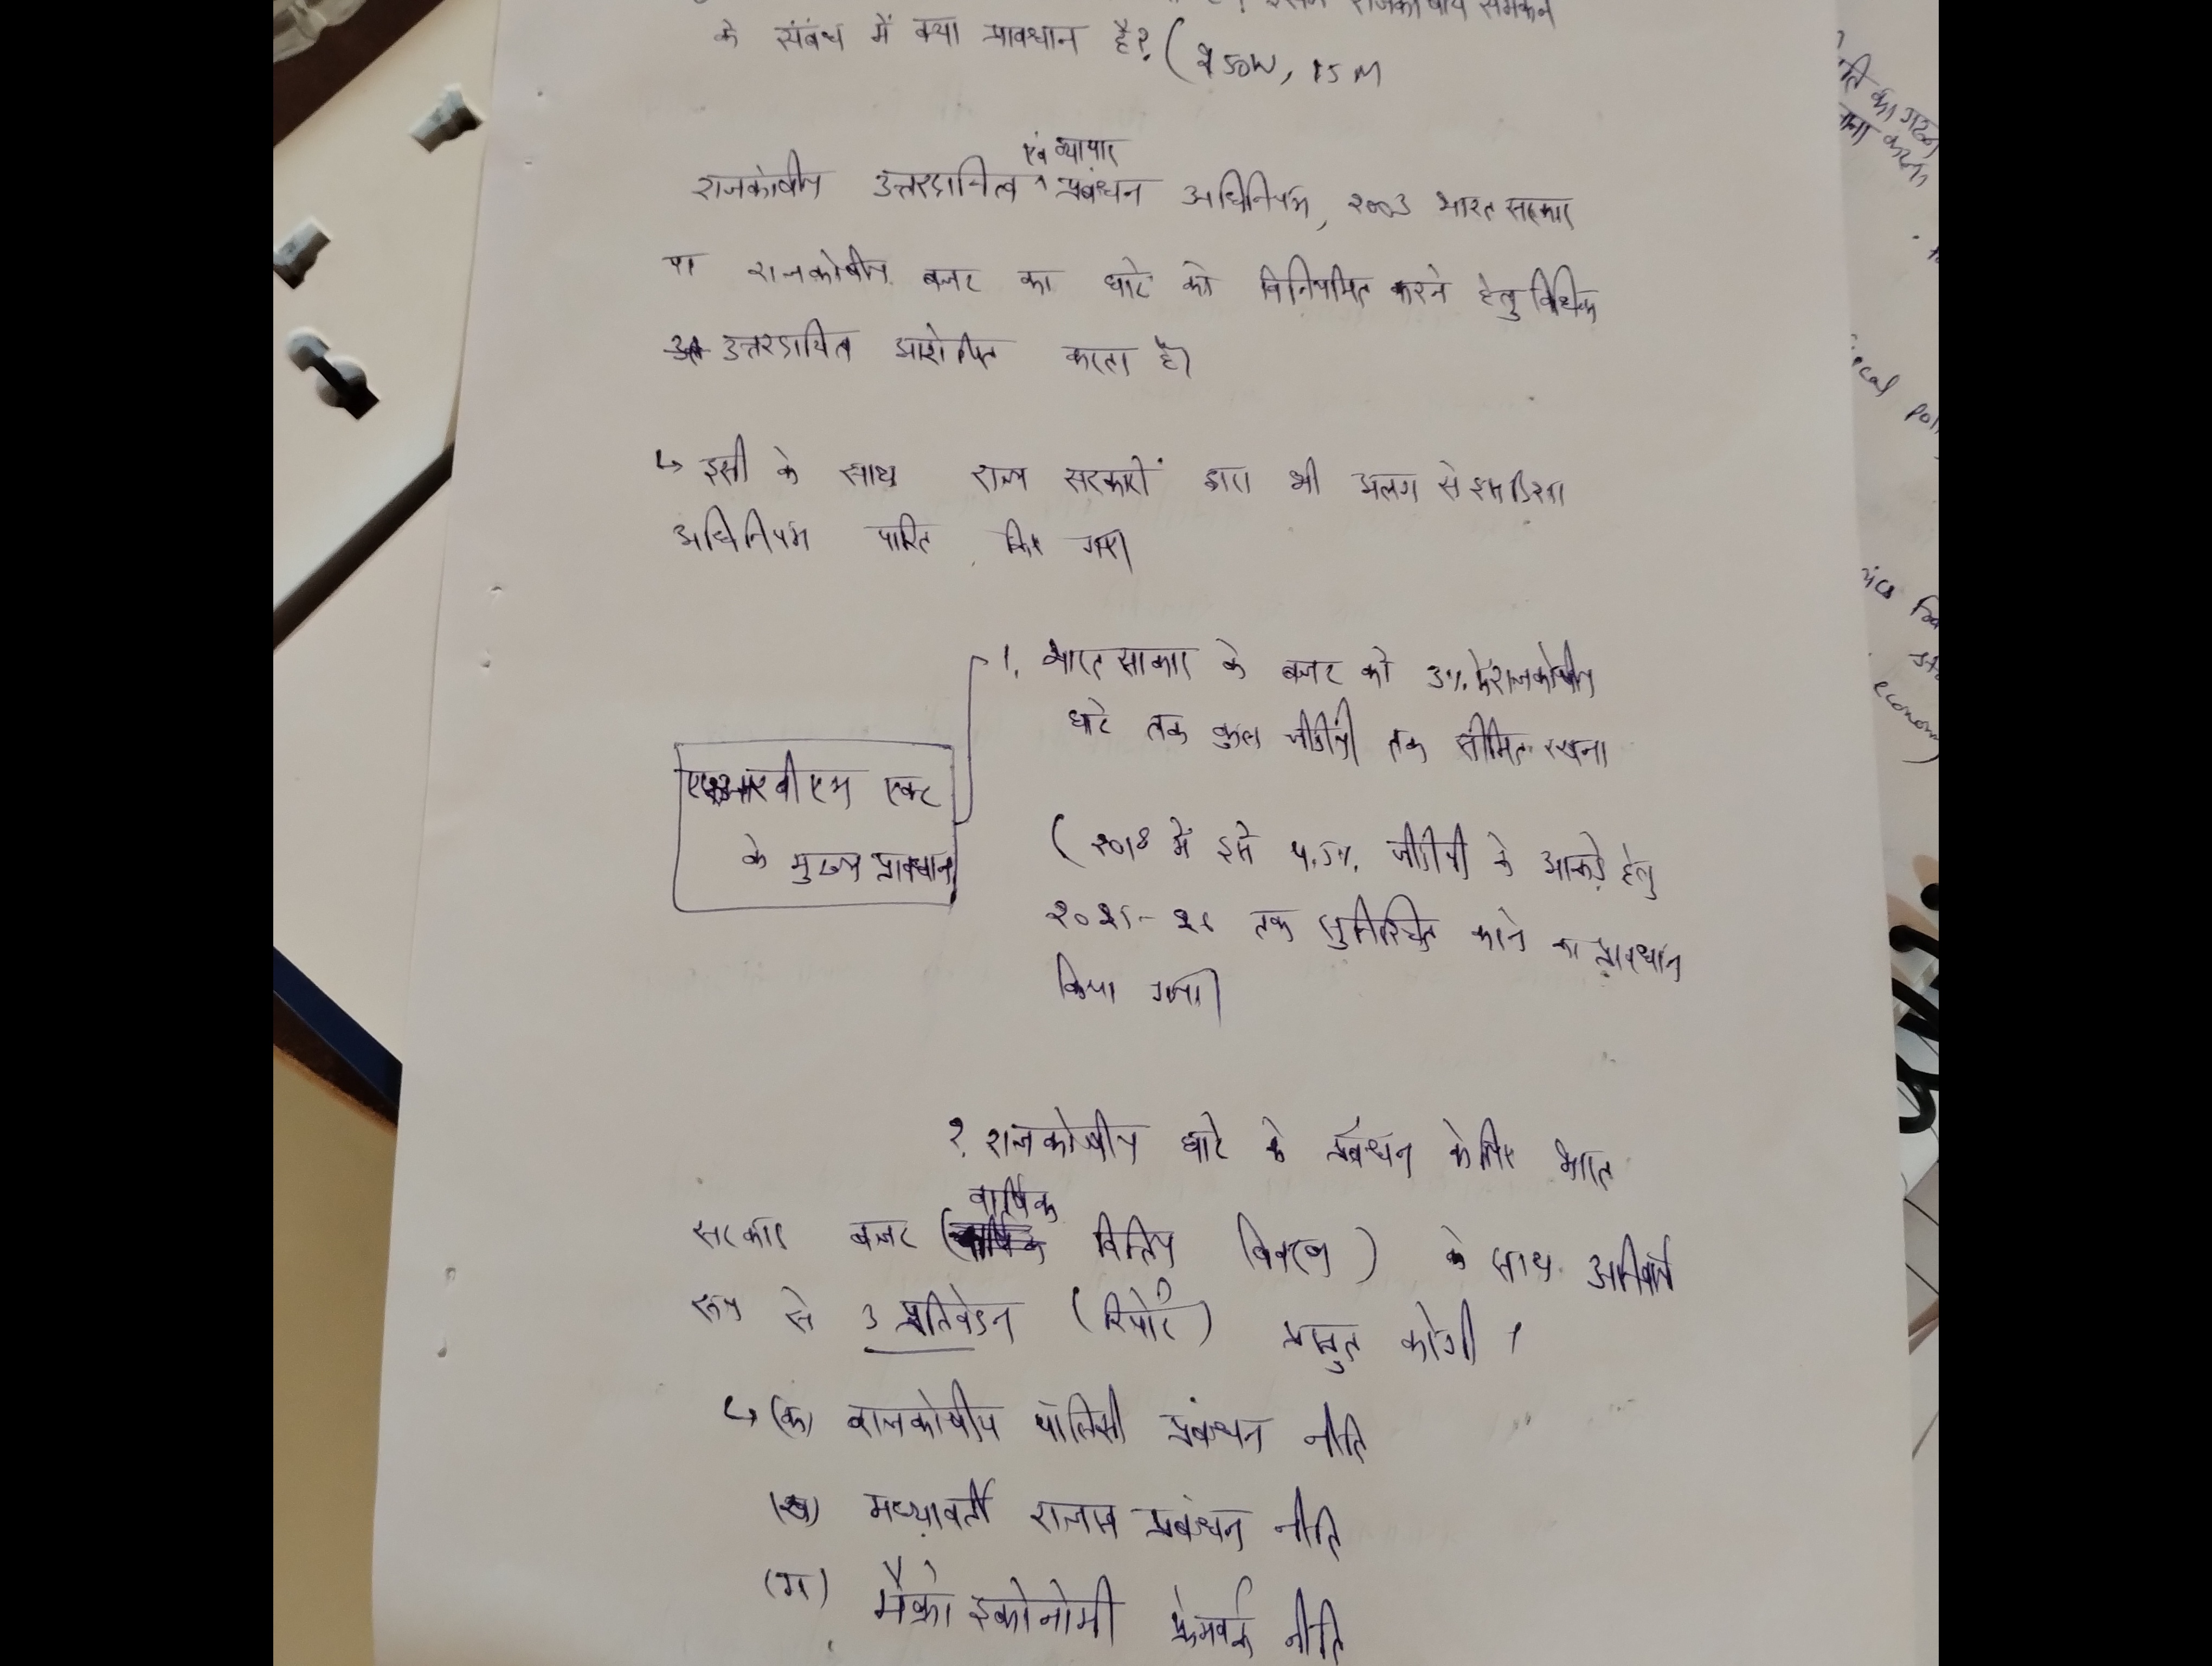 के संबंध में क्या प्रावधान है? (250W, 15M
एवं व्यापार
राजकोषीय उत्तरदायित्व प्रबंधन अधिनियम, 2003 भारत सरकार
पर राजकोषीय बजट का घाटे को विनियमित करने हेतु विधिक
उत्तरदायित्व आरोपित करता है।
↳ इसी के साथ राज्य सरकारों द्वारा भी अलग से
अधिनियम पारित किए गए।
1. भारत सरकार के बजट को 3% के राजकोषीय
घाटे तक कुल जीडीपी तक सीमित रखना
एफआरबीएम एक्ट
के मुख्य प्रावधान
(2018 में इसे 4.5% जीडीपी के आकड़े हेतु
2025-26 तक सुनिश्चित करने का प्रावधान
किया गया।
2. राजकोषीय घाटे के प्रबंधन के लिए भारत
वार्षिक
सरकार बजट ( वित्तिय विवरण) के साथ अनिवार्य
रूप से 3 प्रतिवेदन (रिपोर्ट) प्रस्तुत करेगी
↳ (क) राजकोषीय पॉलिसी प्रबंधन नीति
(ख) मध्यावर्ती राजस्व प्रबंधन नीति
(ग) मैक्रो इकोनोमी फ्रेमवर्क नीति